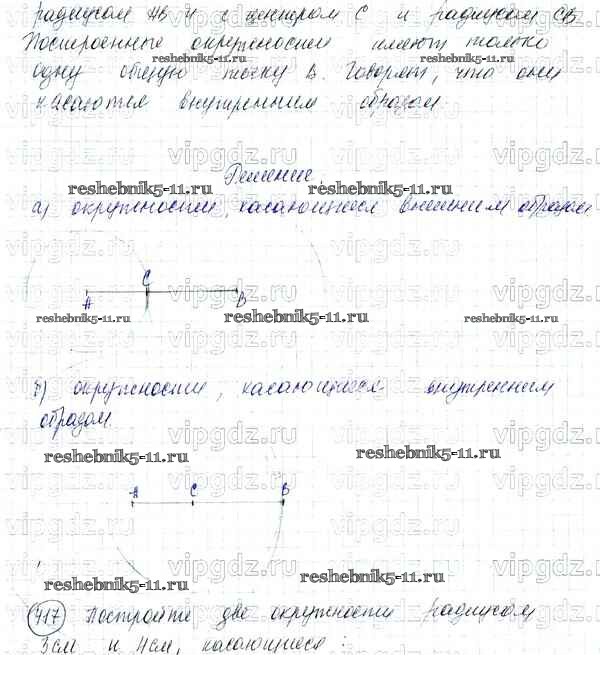 радиусом АВ и с центром С и радиусом СВ
Построенные окружности имеют только
одну общую точку В. Говорят, что они
касаются внутренним образом
vipgdz.ru
Решение
reshebnik5-11.ru reshebnik5-11.ru
а) окружности, касающиеся внешним образом
С
А В
reshebnik5-11.ru reshebnik5-11.ru reshebnik5-11.ru
б) окружности, касающиеся внутренним
образом
reshebnik5-11.ru reshebnik5-11.ru
А С В
reshebnik5-11.ru reshebnik5-11.ru
717 Постройте две окружности радиусом
3см и 4см, касающиеся: